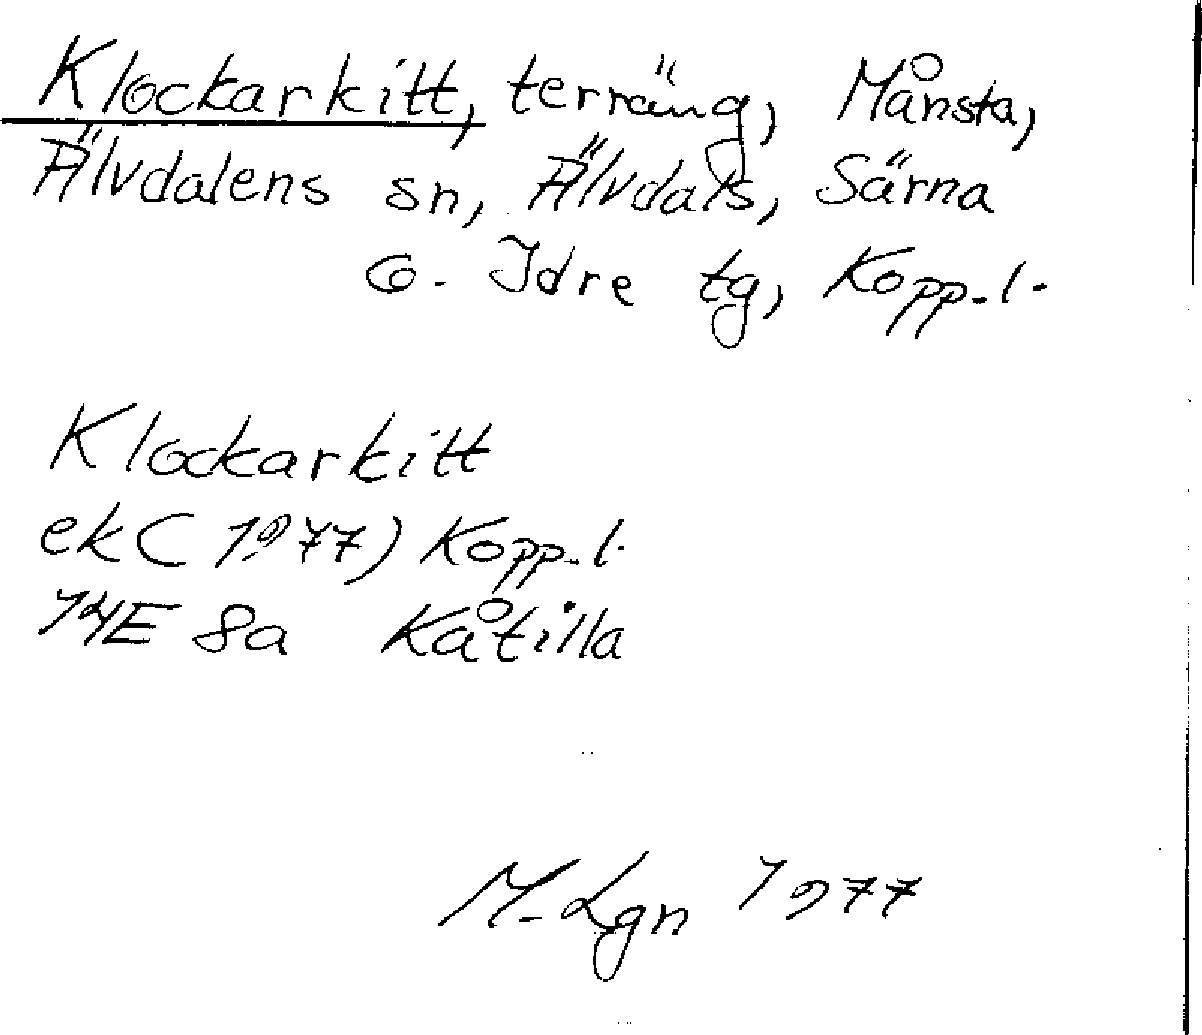 Klockarkitt, terräng, Månsta,
Älvdalens sn, Älvdals, Särna
o. Idre tg, Kopp. l.
Klockarkitt
ek (1977) Kopp. l.
14E 8a Kåtilla
M. Lgn 1977